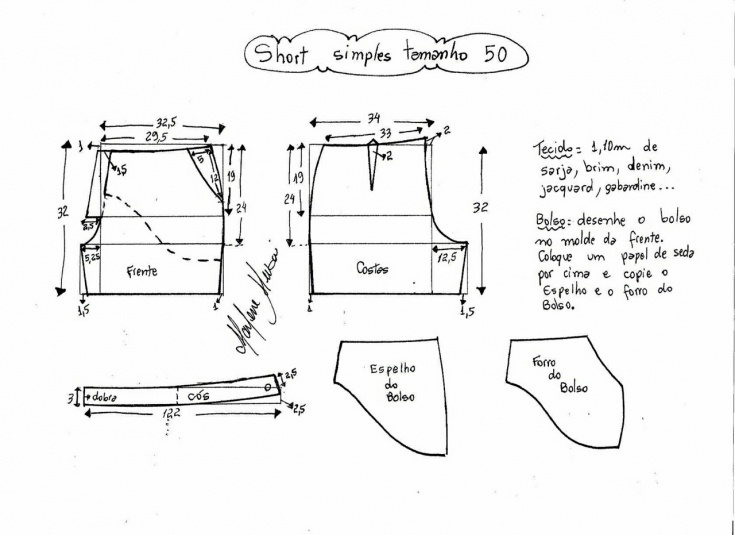 Short simples tamanho 50
32,5
29,5
1
1,5
5
12
19
24
32
2,5
5,25
Frente
1,5
1
34
33
2
2
19
24
32
12,5
Costas
1
1,5
Marlene Mukai
Tecido: 1,10m de
sarja, brim, denim,
jacquard, gabardine...
Bolso: desenhe o bolso
no molde da frente.
Coloque um papel de seda
por cima e copie o
Espelho e o forro do
Bolso.
3
dobra
cós
2,5
2,5
122
Espelho
do
Bolso
Forro
do
Bolso